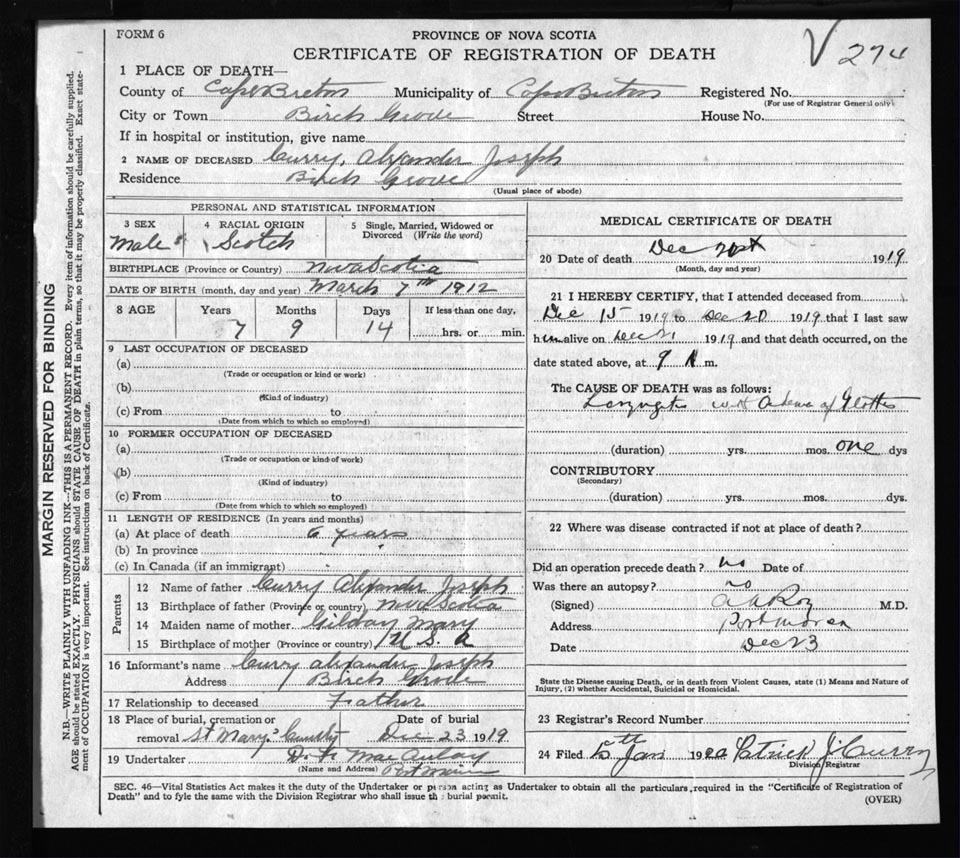 FORM 6
PROVINCE OF NOVA SCOTIA
CERTIFICATE OF REGISTRATION OF DEATH
274
1 PLACE OF DEATH—
County of Cape Breton Municipality of Cape Breton Registered No.
(For use of Registrar General only)
City or Town Birch Grove Street House No.
If in hospital or institution, give name
2 NAME OF DECEASED Curry, Alexander Joseph
Residence Birch Grove
(Usual place of abode)
PERSONAL AND STATISTICAL INFORMATION
3 SEX 4 RACIAL ORIGIN 5 Single, Married, Widowed or
Divorced (Write the word)
Male Scotch
BIRTHPLACE (Province or Country) Nova Scotia
DATE OF BIRTH (month, day and year) March 7th 1912
8 AGE Years Months Days If less than one day,
7 9 14 hrs. or min.
9 LAST OCCUPATION OF DECEASED
(a)
(Trade or occupation or kind or work)
(b)
(Kind of industry)
(c) From to
(Date from which to which so employed)
10 FORMER OCCUPATION OF DECEASED
(a)
(Trade or occupation or kind of work)
(b)
(Kind of industry)
(c) From to
(Date from which to which so employed)
11 LENGTH OF RESIDENCE (In years and months)
(a) At place of death 6 years
(b) In province
(c) In Canada (if an immigrant)
Parents
12 Name of father Curry Alexander Joseph
13 Birthplace of father (Province or country) Nova Scotia
14 Maiden name of mother Gilday Mary
15 Birthplace of mother (Province or country) U.S.A
16 Informant's name Curry Alexander Joseph
Address Birch Grove
17 Relationship to deceased Father
18 Place of burial, cremation or Date of burial
removal St Mary's Dec 23 1919
19 Undertaker D. MacAulay
(Name and Address) Port Morien
MEDICAL CERTIFICATE OF DEATH
20 Date of death Dec 1919
(Month, day and year)
21 I HEREBY CERTIFY, that I attended deceased from
Dec 15 1919 to Dec 20 1919 that I last saw
him alive on Dec 21 1919 and that death occurred, on the
date stated above, at 9 A m.
The CAUSE OF DEATH was as follows:
Laryngitis with Odema of Glottis
(duration) yrs. mos. one dys
CONTRIBUTORY
(Secondary)
(duration) yrs. mos. dys.
22 Where was disease contracted if not at place of death?
Did an operation precede death? no Date of
Was there an autopsy? no
(Signed) Roy M.D.
Address Port Morien
Date Dec 23
State the Disease causing Death, or in death from Violent Causes, state (1) Means and Nature of
Injury, (2) whether Accidental, Suicidal or Homicidal.
23 Registrar's Record Number
24 Filed Jan 1920 Patrick J Curry
Division Registrar
SEC. 46—Vital Statistics Act makes it the duty of the Undertaker or person acting as Undertaker to obtain all the particulars required in the "Certificate of Registration of
Death" and to fyle the same with the Division Registrar who shall issue the burial permit.
(OVER)
MARGIN RESERVED FOR BINDING
N.B.—WRITE PLAINLY WITH UNFADING INK—THIS IS A PERMANENT RECORD. Every item of information should be carefully supplied.
AGE should be stated EXACTLY. PHYSICIANS should STATE CAUSE OF DEATH in plain terms, so that it may be properly classified. Exact state-
ment of OCCUPATION is very important. See instructions on back of Certificate.